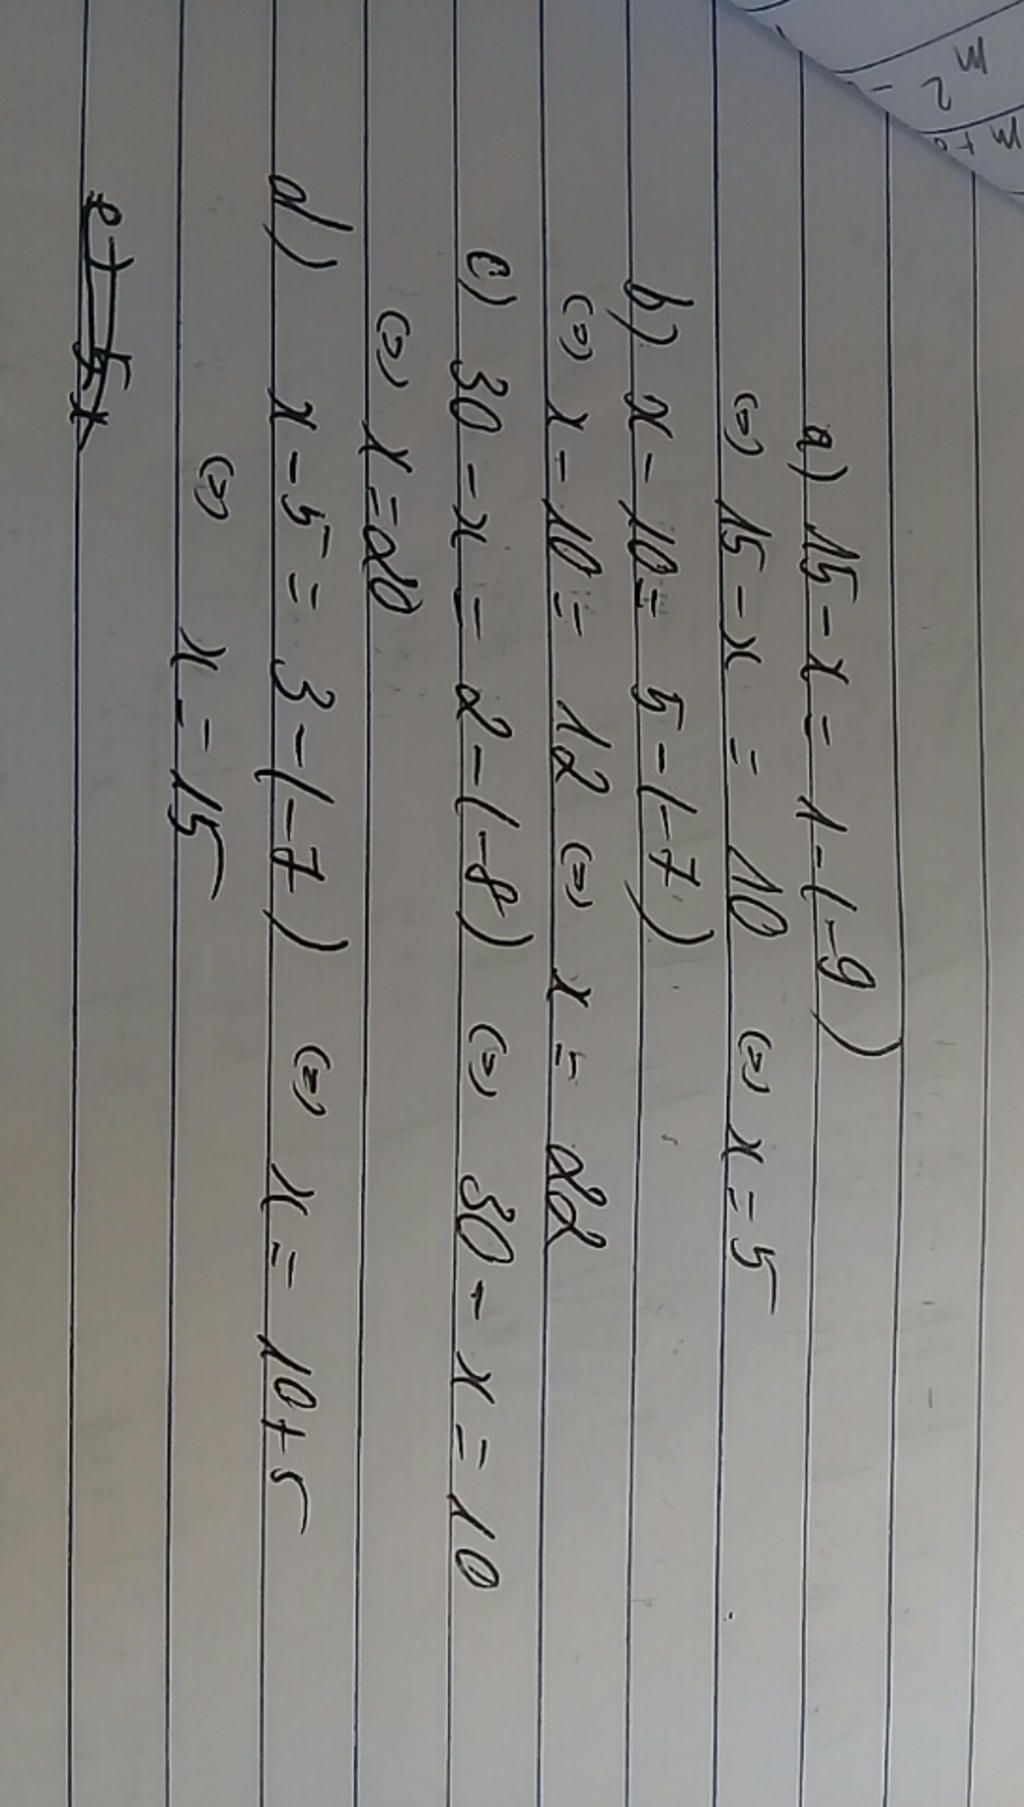 a) 15 - x = 1 - (-9)
(=) 15 - x = 10 (=) x = 5
b) x - 10 = 5 - (-7)
(=) x - 10 = 12 (=) x = 22
c) 30 - x = 2 - (-8) (=) 30 - x = 10
(=) x = 20
d) x - 5 = 3 - (-7) (=) x = 10 + 5
(=) x = 15